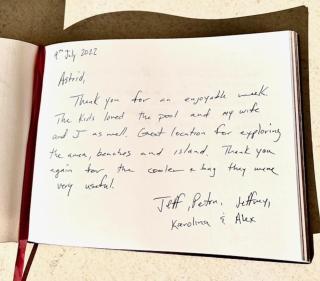 9th July 2022
Astrid,
Thank you for an enjoyable week.
The kids loved the pool and my wife
and I as well. Great location for exploring
the area, beaches and island. Thank you
again for the cooler & bag they were
very useful.
Jeff, Petra, Jeffrey,
Karolina & Alex